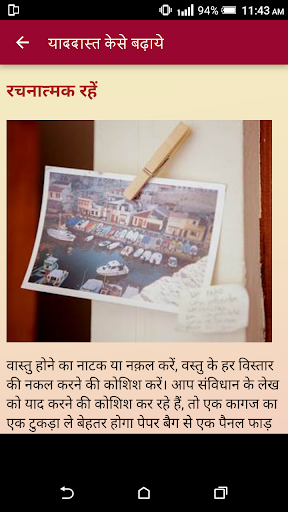 94% 11:43 AM
याददास्त केसे बढ़ाये
रचनात्मक रहें
वास्तु होने का नाटक या नक़ल करें, वस्तु के हर विस्तार
की नकल करने की कोशिश करें। आप संविधान के लेख
को याद करने की कोशिश कर रहे हैं, तो एक कागज का
एक टुकड़ा ले बेहतर होगा पेपर बैग से एक पैनल फाड़